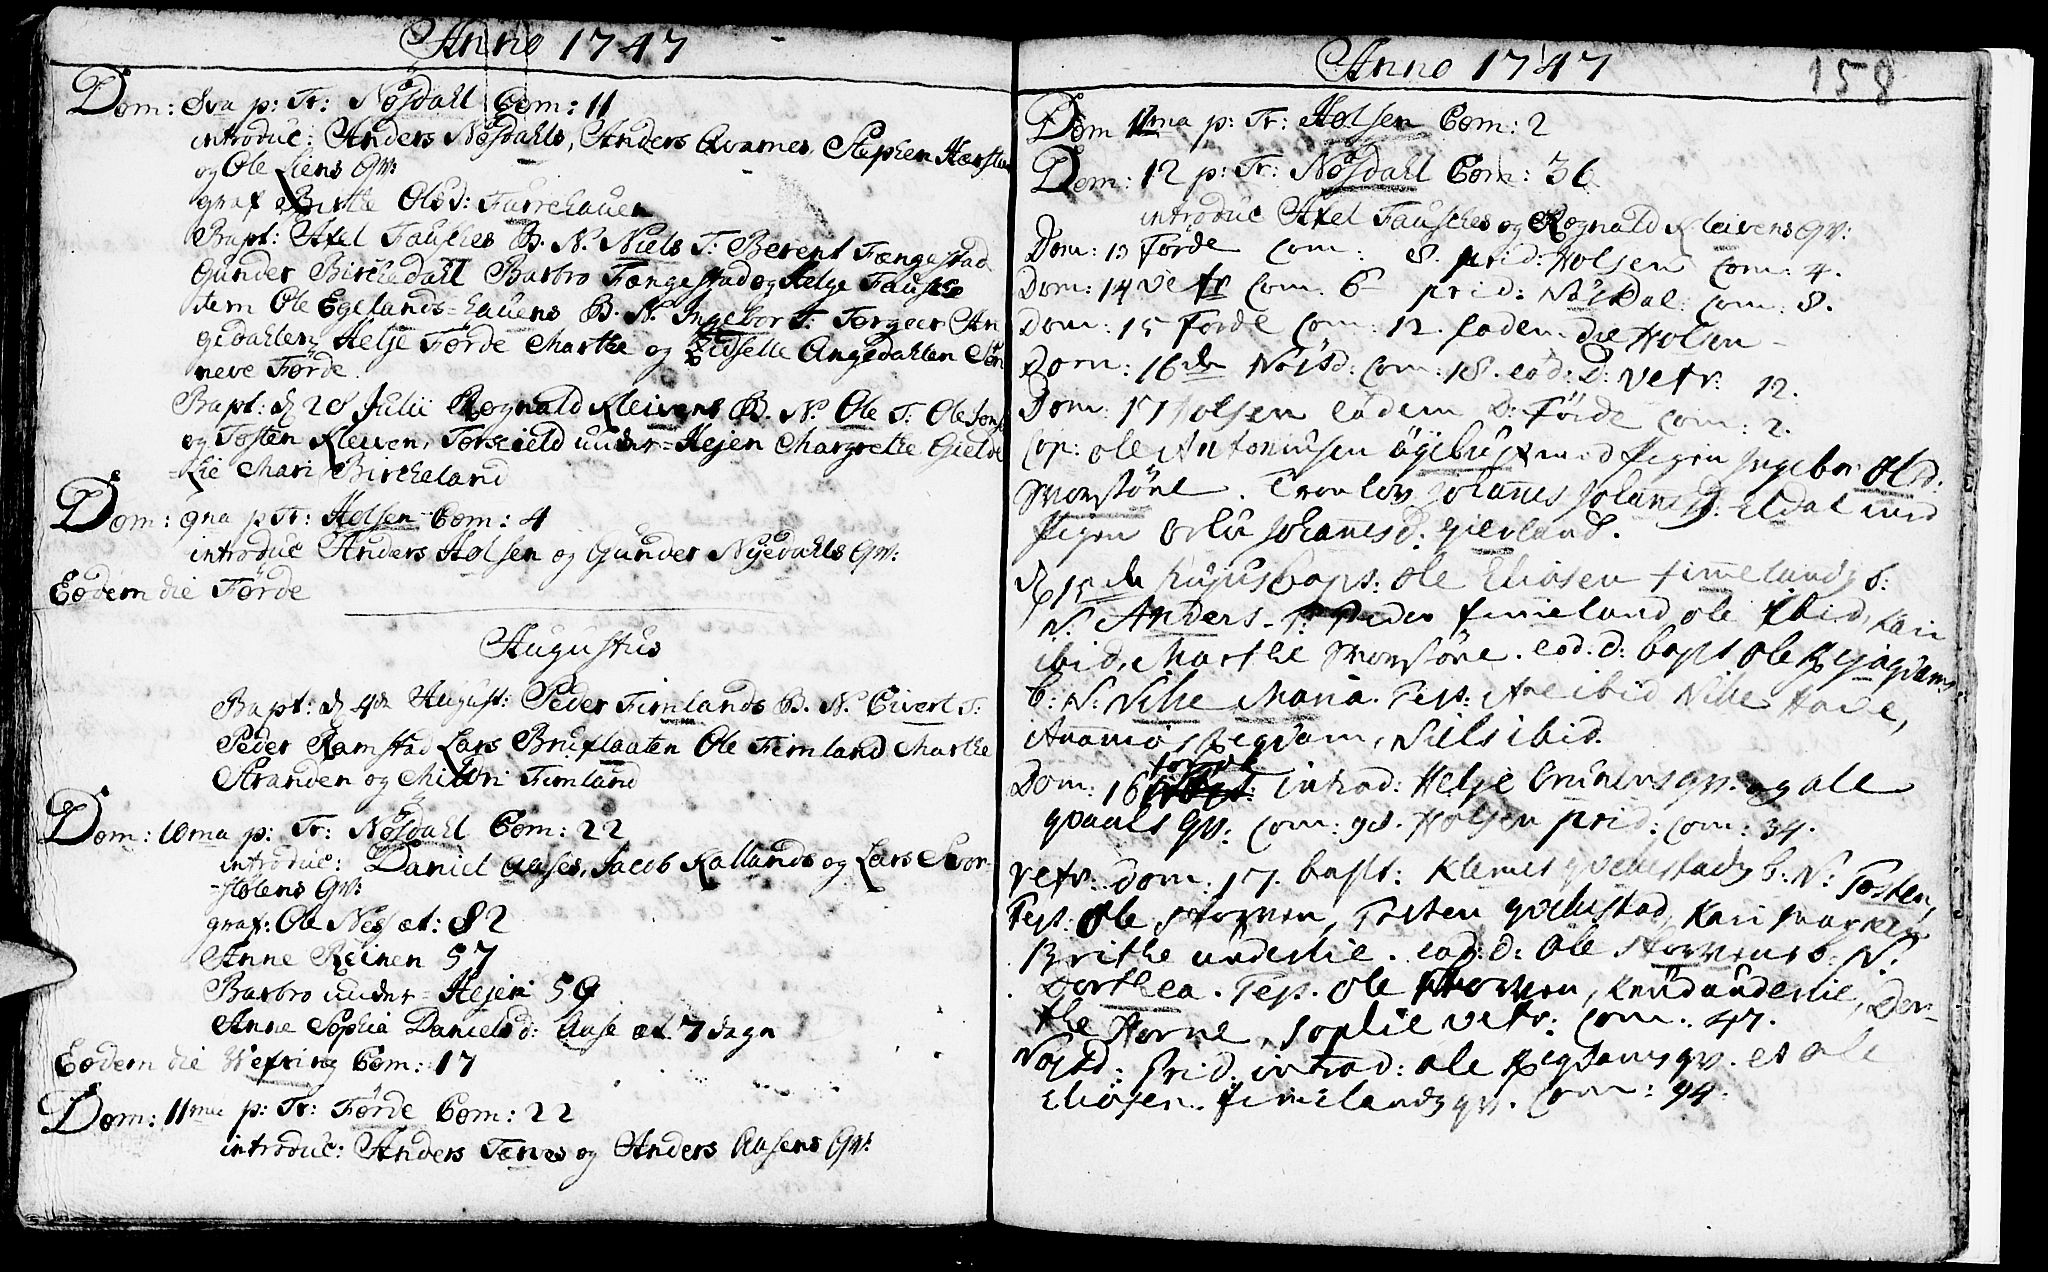 Anno 1747
Dom: 8va p: Tr: Nøsdahl Com: 11
introduc: Anders Nøsdahls, Anders Qvames, Stephen Hærsta
og Ole Liens Qv:
graf Birtte Olsd: Furrehauen
Bapt: Axel Fausches B. N. Niels T: Berent Fængestad
Gunder Birchedahl Barbro Fængestad og Helge Fauske
item Ole Egelands-hauens B. N. Ingebor T: Torgeer An
gedahlen, Helje Førde Marthe og Zidselle Angedahlen Sön
neve Førde.
Bapt: d 28 Julii Rognald Kleivens B. N. Ole T. Ole Jons
og Tosten Kleiven, Torkield under-Hejen Margrethe Gielde
lie Mari Bircheland
Dom: 9na p Tr: Holsen Com: 4
introduc Anders Holsen og Gunder Nyedahls Qv:
Eodem die Førde
Augustus
Bapt: d 4de August: Peder Fimlands B. N. Eivert T:
Peder Ramstad Lars Bruflaaten Ole Fimland Marthe
Stranden og Fimland
Dom: 10ma p: Tr: Nøsdahl Com: 22
introduc: Daniel Aases, Jacob Kallands og Lars Svor-
-stølens Qv:
graf: Ole Nes æt: 82
Anne Reinen 57
Barbro under-Hejen 59
Anne Sophia Danielsd: Aase æt 7 dage
Eodem die Wefring Com: 17
Dom: 11me p: Tr: Førde Com: 22
introduc: Anders Tenes og Anders Aasens Qv:
Anno 1747 158
Dom 11ma p: Tr: Holsen Com: 2
Dom: 12 p: Tr: Nøsdahl Com: 36
introduc Axel Fausches og Rognald Kleivens Qv:
Dom: 13 Førde Com: 8. prid: Holsen Com: 4.
Dom: 14 Vefr Com. 6 prid: Nøsdal: Com: 8.
Dom: 15 Førde Com: 12. Eadem die Holsen -
Dom: 16de Nøsd: Com: 18. eod: D: Vefr: 12.
Dom: 17 Holsen eadem D: Förde Com: 2.
Cop: Ole Antoniusen med Pigen Ingebor Olsd:
. Johanes Eldal med
Pigen Johanesd. Gierland.
d 15de bapt: Ole Eliasen Fimelands b:
N: Anders. T: Peder Fimeland Ole ibid, Kari
ibid, Marthe . eod: d: bapt Ole
b: N: Maria. Test: ibid
, Niels ibid.
Dom: 16 Førde introd: Helje qv: og Ole
qv: Com: 98. Holsen prid: Com: 34.
Vefr: Dom: 17. bapt: b: N: Tosten,
Test: Ole , Tosten , Kari
Brithe underlie. eod: d: Ole b: N:
Dorthea. Test. Ole , Knud underlie, Dor-
the , Sophie Vefr: Com: 47.
Nøsd: Prid: introd: Ole qv. et Ole
Eliasen Fimelands qv. Com: 94.